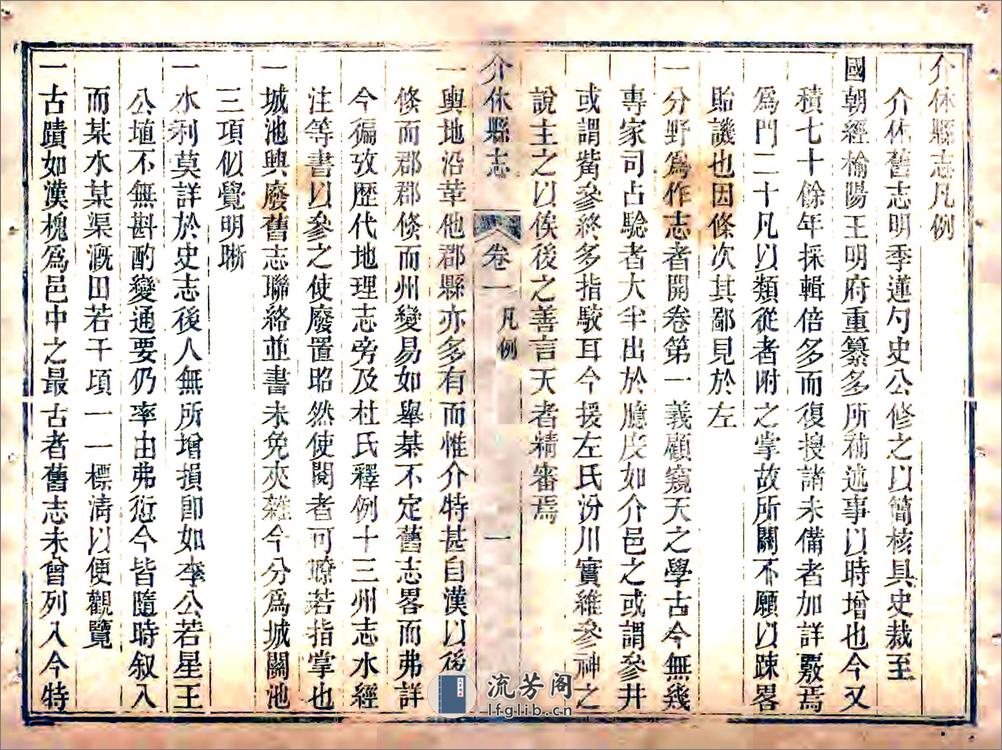 介休縣志凡例
介休舊志明季蓮勺史公修之以簡核具史裁至
國朝經榆陽王明府重纂多所補述事以時增也今又
積七十餘年採輯倍多而復搜諸未備者加詳覈焉
爲門二十凡以類從者附之掌故所關不願以踈畧
貽譏也因條次其鄙見於左
一分野爲作志者開卷第一義顧窺天之學古今無幾
專家司占驗者大半出於臆度如介邑之或謂參井
或謂觜參終多指駁耳今援左氏汾川實維參神之
說主之以俟後之善言天者精審焉
介休縣志
卷一
凡例
一
一輿地沿革他郡縣亦多有而惟介特甚自漢以後
倏而郡郡倏而州變易如舉棊不定舊志畧而弗詳
今徧攷歷代地理志旁及杜氏釋例十三州志水經
注等書以參之使廢置昭然使閱者可瞭若指掌也
一城池興廢舊志聯絡並書未免夾雜今分爲城關池
三項似覺明晰
一水利莫詳於史志後人無所增損卽如李公若星王
公埴不無斟酌變通要仍率由弗愆今皆隨時叙入
而某水某渠溉田若干頃一一標清以便觀覽
一古蹟如漢槐爲邑中之最古者舊志未曾列入今特
流芳阁
lfglib.cn